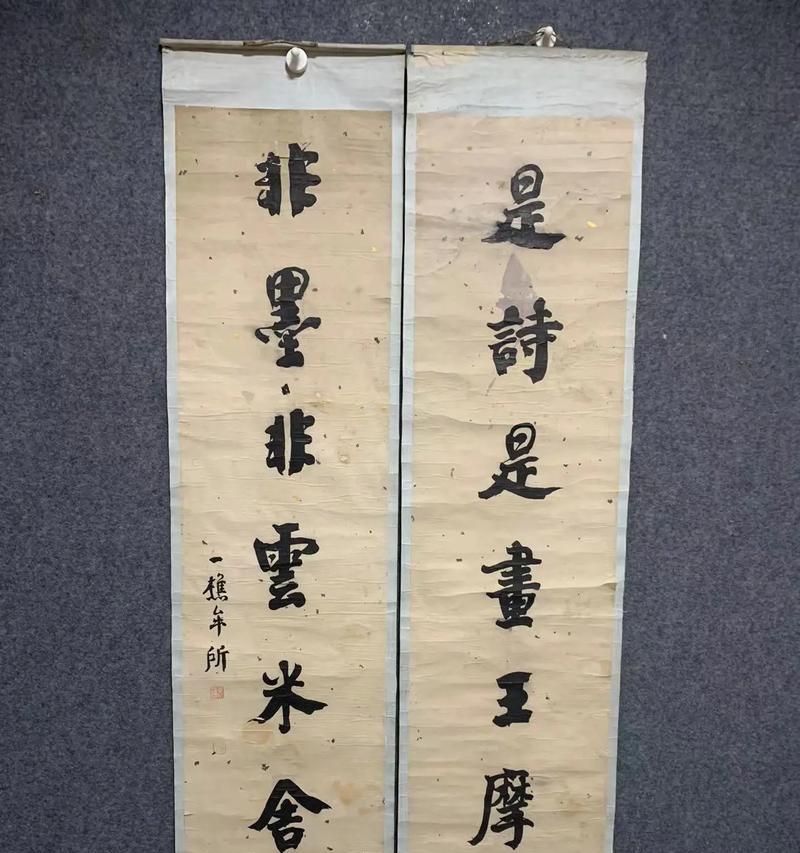 是詩是畫王摩
非墨非雲米舍
一樵牟所